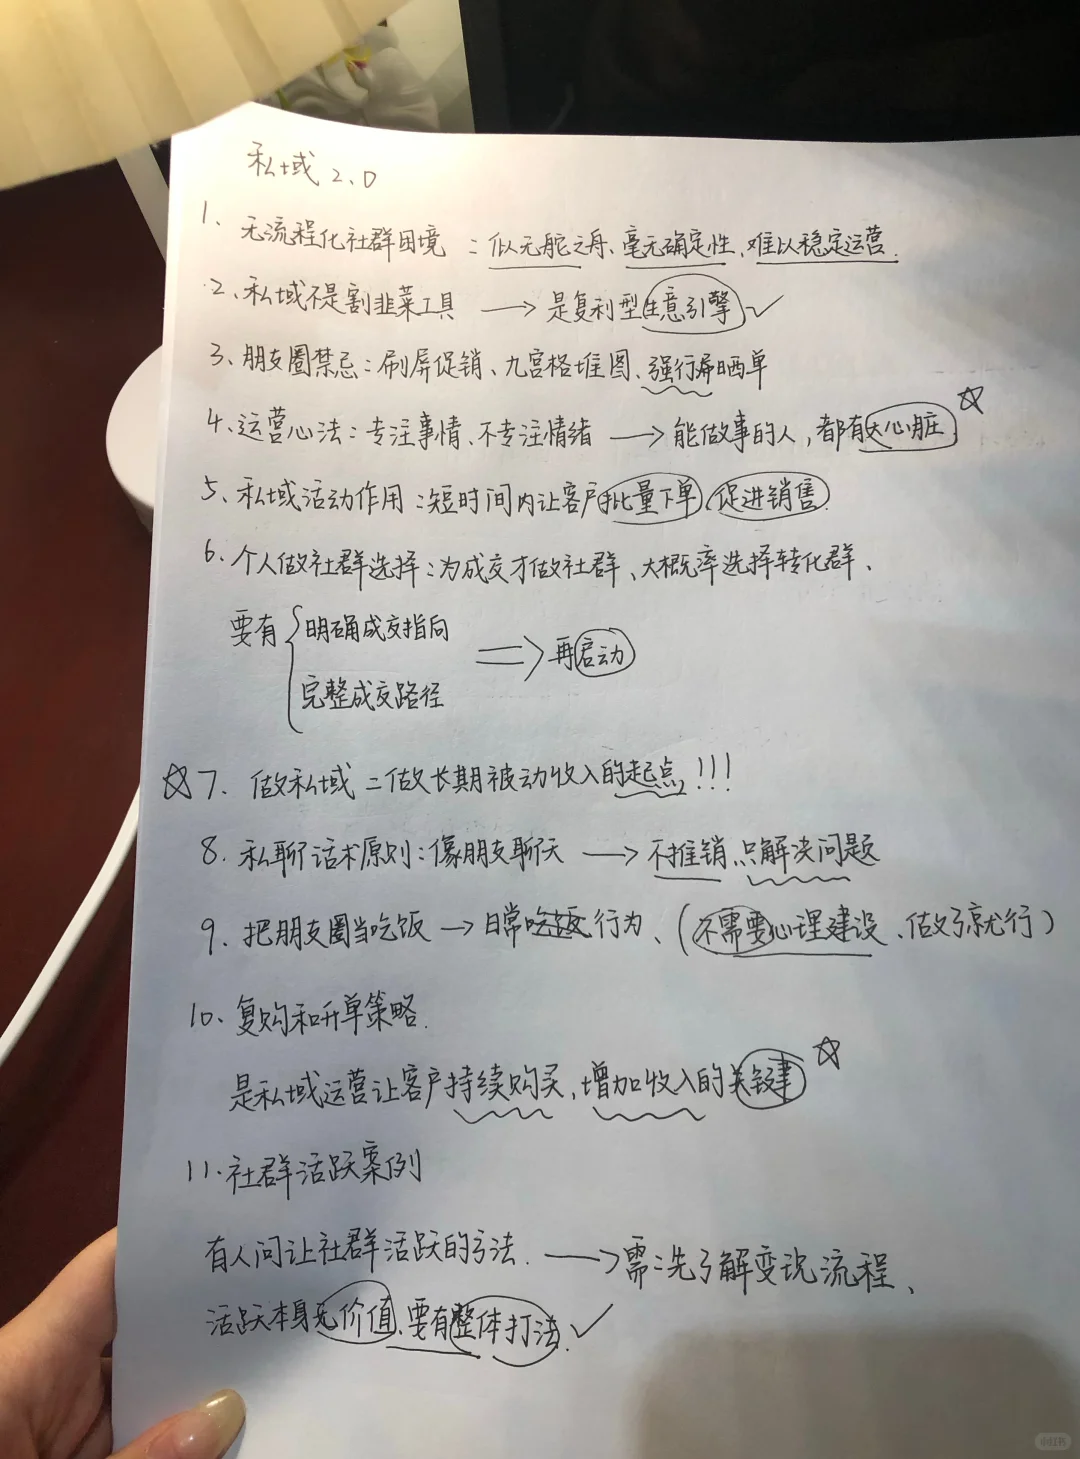 私域 2.0
1、无流程化社群困境：似无舵之舟、毫无确定性、难以稳定运营.
2、私域不是割韭菜工具 → 是复利型生意引擎 ✓
3、朋友圈禁忌：刷屏促销、九宫格堆图、强行晒单
4、运营心法：专注事情、不专注情绪 → 能做事的人，都有大心脏 ☆
5、私域活动作用：短时间内让客户批量下单、促进销售.
6、个人做社群选择：为成交才做社群、大概率选择转化群、
要有 { 明确成交指向
完整成交路径
⇒ 再启动
☆7、做私域 = 做长期被动收入的起点!!!
8、私聊话术原则：像朋友聊天 → 不推销 只解决问题
9、把朋友圈当吃饭 → 日常吃饭行为、(不需要心理建设、做了就行)
10、复购和升单策略.
是私域运营让客户持续购买，增加收入的关键事 ☆
11、社群活跃案例
有人问让社群活跃的方法. → 需：先了解变现流程、
活跃本身无价值、要有整体打法. ✓
小红书